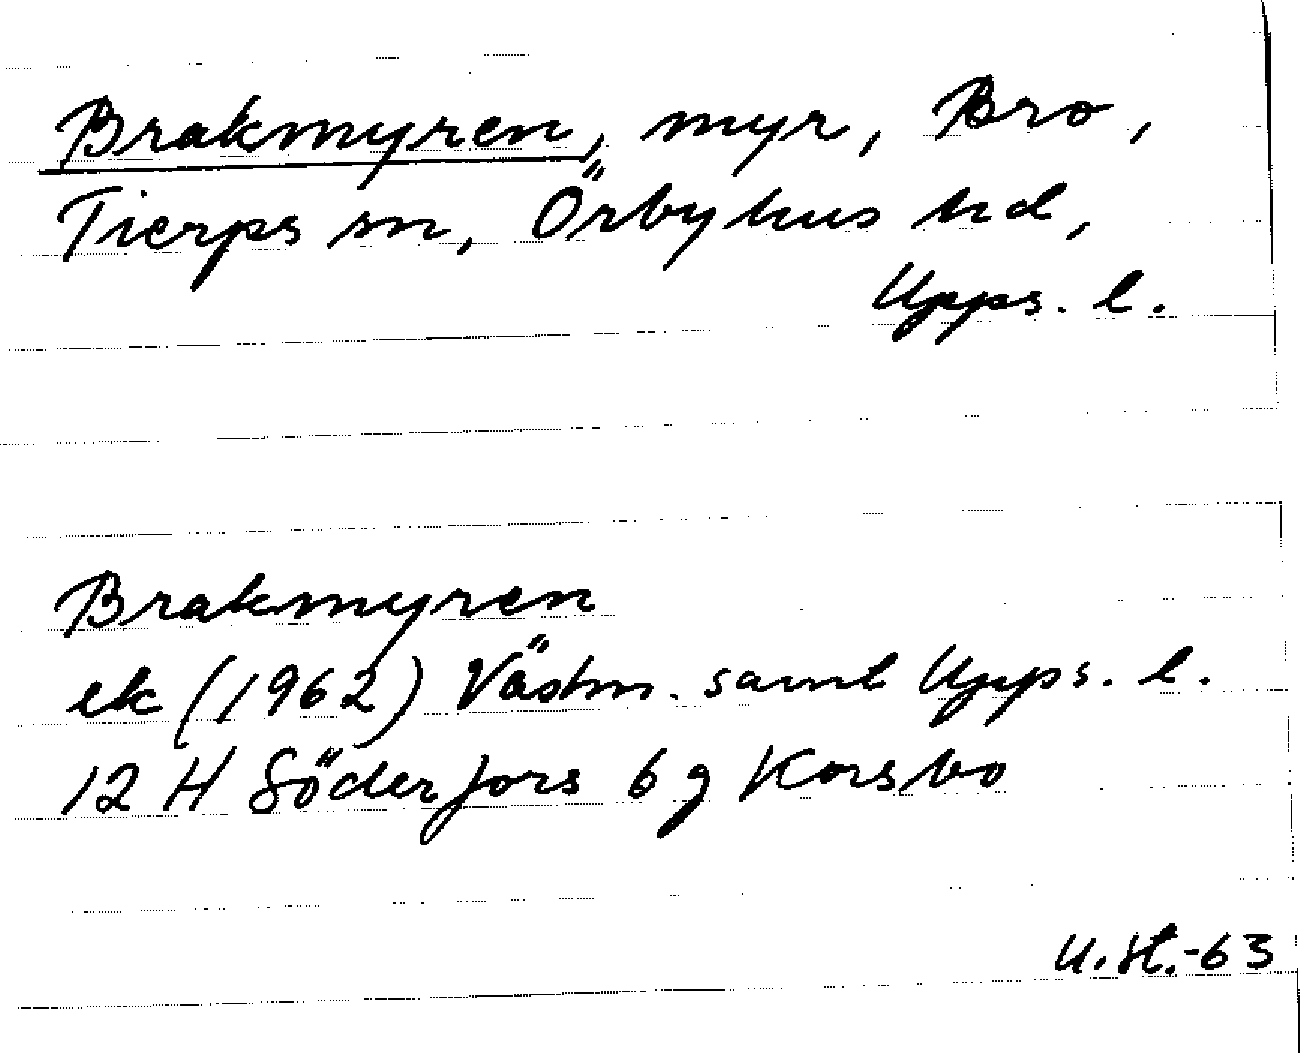 Brakmyren, myr, Bro,
Tierps sn, Örbyhus hd,
Upps. l.
Brakmyren
ek (1962) Västm. samt Upps. l.
12 H Söderfors 6 g Korsbo
U.H.-63